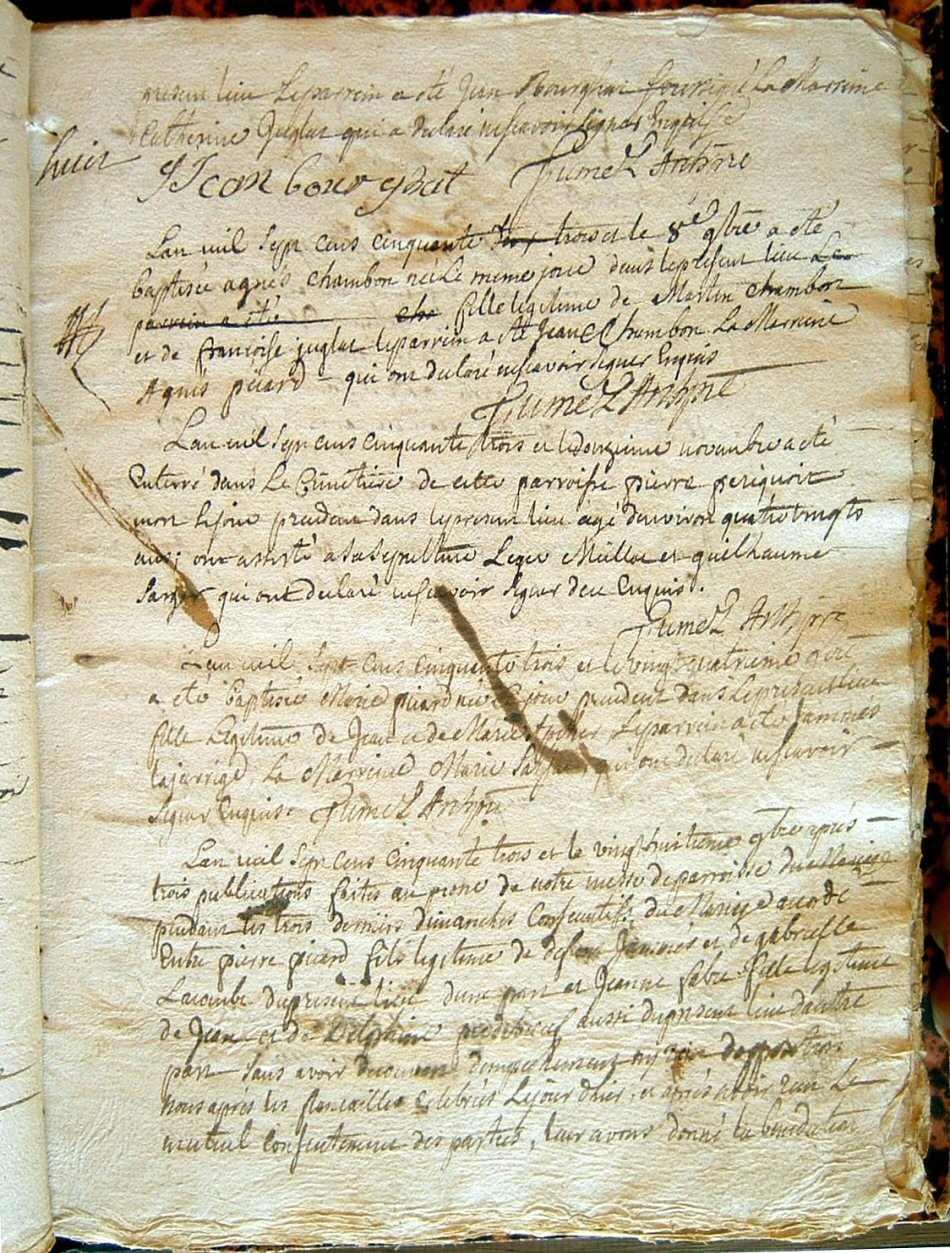 present lieu Le parrein a été Jean Bourghat soussigné La Marreine
Catherine Juglat qui a declaré ne scavoir signer Enquise
huit
Jean bourghat fumel
Lan mil sept cens cinquante trois et le 8e 9bre a été
baptisée agnés chambon née Le meme jour dans le present lieu Le
parrein a été fille legitime de Martin chambon
et de francoise juglat le parrein a été Jean Chambon La Marreine
Agnés picard qui ont declaré ne scavoir signer Enquis
fumel
Lan mil sept cens cinquante trois et le douzieme novembre a été
Enterré dans Le Cimetière de cette parroisse pierre
mort le jour precedent dans le present lieu agé denviron quatre vingts
ans; ont assisté a sa sepulture Leger et guilhaume
qui ont declaré ne scavoir signer de ce Enquis.
fumel
Lan mil sept cens cinquante trois et le vingt quatrieme
a eté baptisée Marie picard née Le jour precedent dans Le present lieu
fille Legitime de Jean et de Marie Le parrein a été Jammes
lajarrige La Marreine Marie qui ont declaré ne scavoir
signer Enquis. fumel
Lan mil sept cens cinquante trois et le vingt huitieme 9bre aprés
trois publications faites au prone de notre messe de parroisse du Mariage
pendant les trois derniers dimanches Consecutifs du Mariage accordé
Entre pierre picard fils legitime de defunt Jammes et de gabrielle
Lacombe du present lieu dune part et Jeanne fabre fille legitime
de Jean et de Delphine aussi du present lieu dautre
part sans avoir decouvert dempechement ny opposition
Nous apres les fiancailles celebrées Le jour dhier, et aprés avoir receu Le
mutuel consentement des parties, leur avons donné la benediction